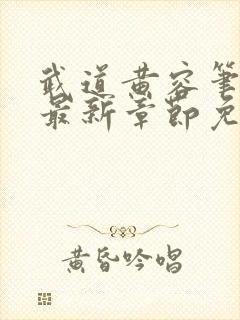 武道黄容笔
最新章节免
黄昏吟唱